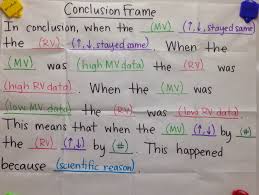 Conclusion Frame
In conclusion, when the (MV) (↑,↓, stayed same)
the (RV) (↑,↓, stayed same). When the
(MV) was (high MV data) the (RV) was
(high RV data). When the (MV) was
(low MV data) the (RV) was (low RV data).
This means that when the (MV) (↑,↓) by (#)
the (RV) (↑,↓) by (#). This happened
because (scientific reason)